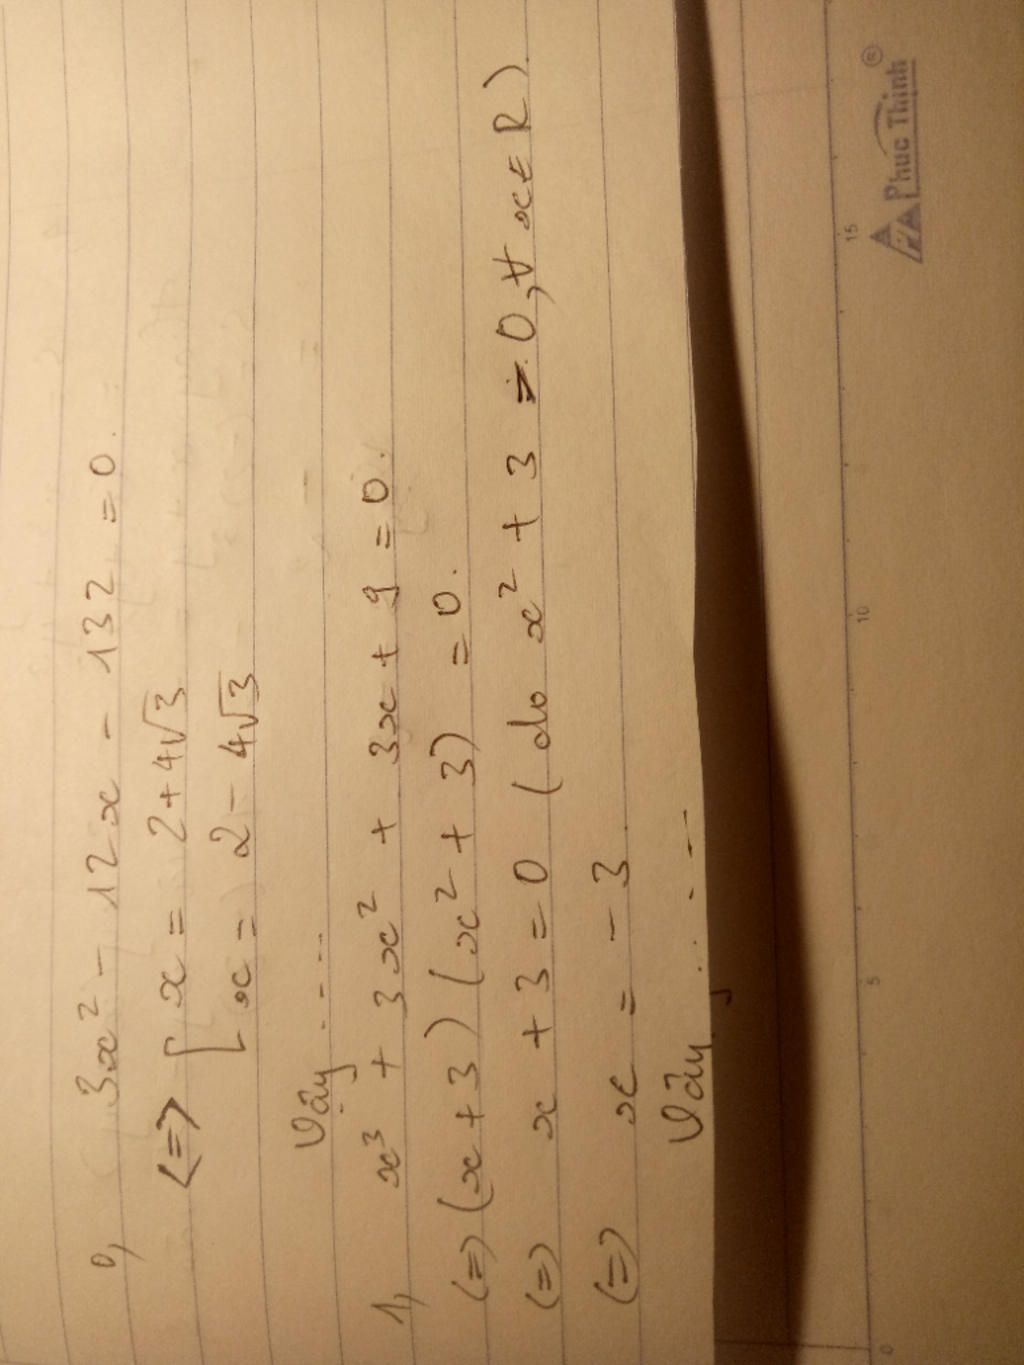 0, 3x² - 12x - 132 = 0.
<=> [ x = 2 + 4√3
x = 2 - 4√3
Vậy . - - -
1, x³ + 3x² + 3x + 9 = 0.
(=) (x + 3) (x² + 3) = 0.
(=) x + 3 = 0 ( do x² + 3 > 0, ∀ x ∈ R ).
(=) x = - 3
Vậy . . - -
0 5 10 15
Phuc Thinh ®